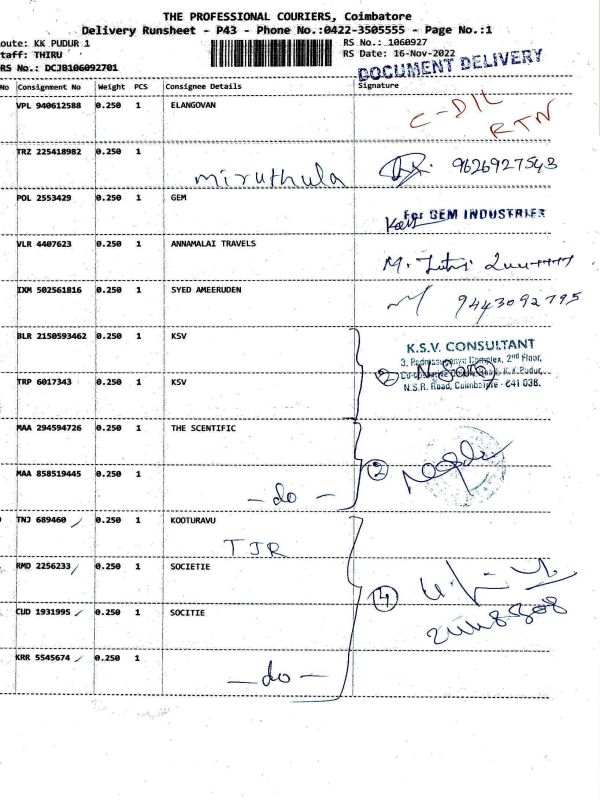 THE PROFESSIONAL COURIERS, Coimbatore
Delivery Runsheet - P43 - Phone No.:0422-3505555 - Page No.:1
oute: KK PUDUR 1 RS No.: 1060927
taff: THIRU RS Date: 16-Nov-2022
RS No.: DCJB106092701 DOCUMENT DELIVERY
No Consignment No Weight PCS Consignee Details Signature
VPL 940612588 0.250 1 ELANGOVAN C-D/L
RTN
TRZ 225418982 0.250 1 miruthula 9626927543
POL 2553429 0.250 1 GEM For GEM INDUSTRIES
VLR 4407623 0.250 1 ANNAMALAI TRAVELS M.
IXM 502561816 0.250 1 SYED AMEERUDEN 9443092795
BLR 2150593462 0.250 1 KSV K.S.V. CONSULTANT
3, Complex, 2nd Floor,
TRP 6017343 0.250 1 KSV 2 K.K.Pudur,
N.S.R. Road, Coimbatore - 641 038.
MAA 294594726 0.250 1 THE SCENTIFIC
MAA 858519445 0.250 1 - do - 2
TNJ 689460 0.250 1 KOOTURAVU
TJR
RMD 2256233 0.250 1 SOCIETIE
CUD 1931995 0.250 1 SOCITIE 4
KRR 5545674 0.250 1 - do -